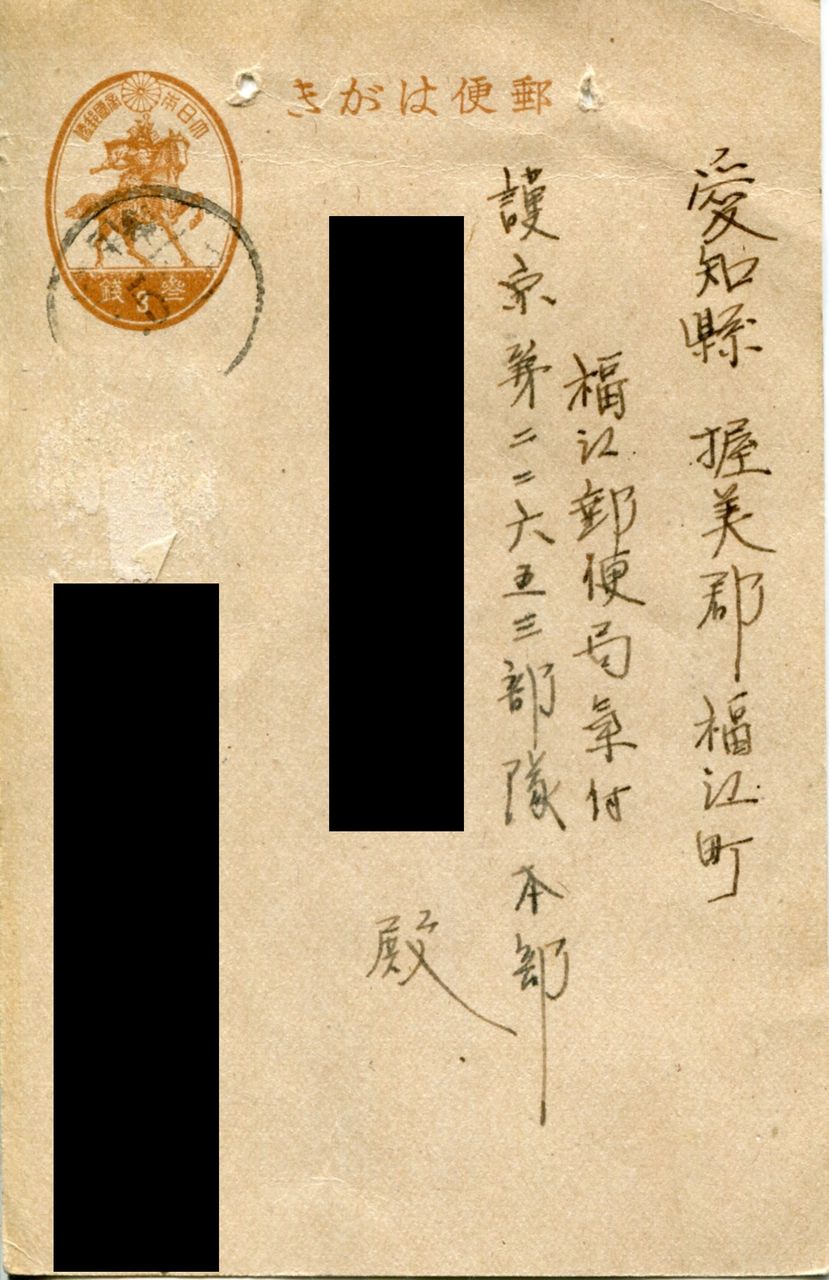 郵便はがき
大日本帝國郵便
参錢
3
愛知縣 握美郡 福江町
福江郵便局氣付
護京第二二六五三部隊 本部
殿